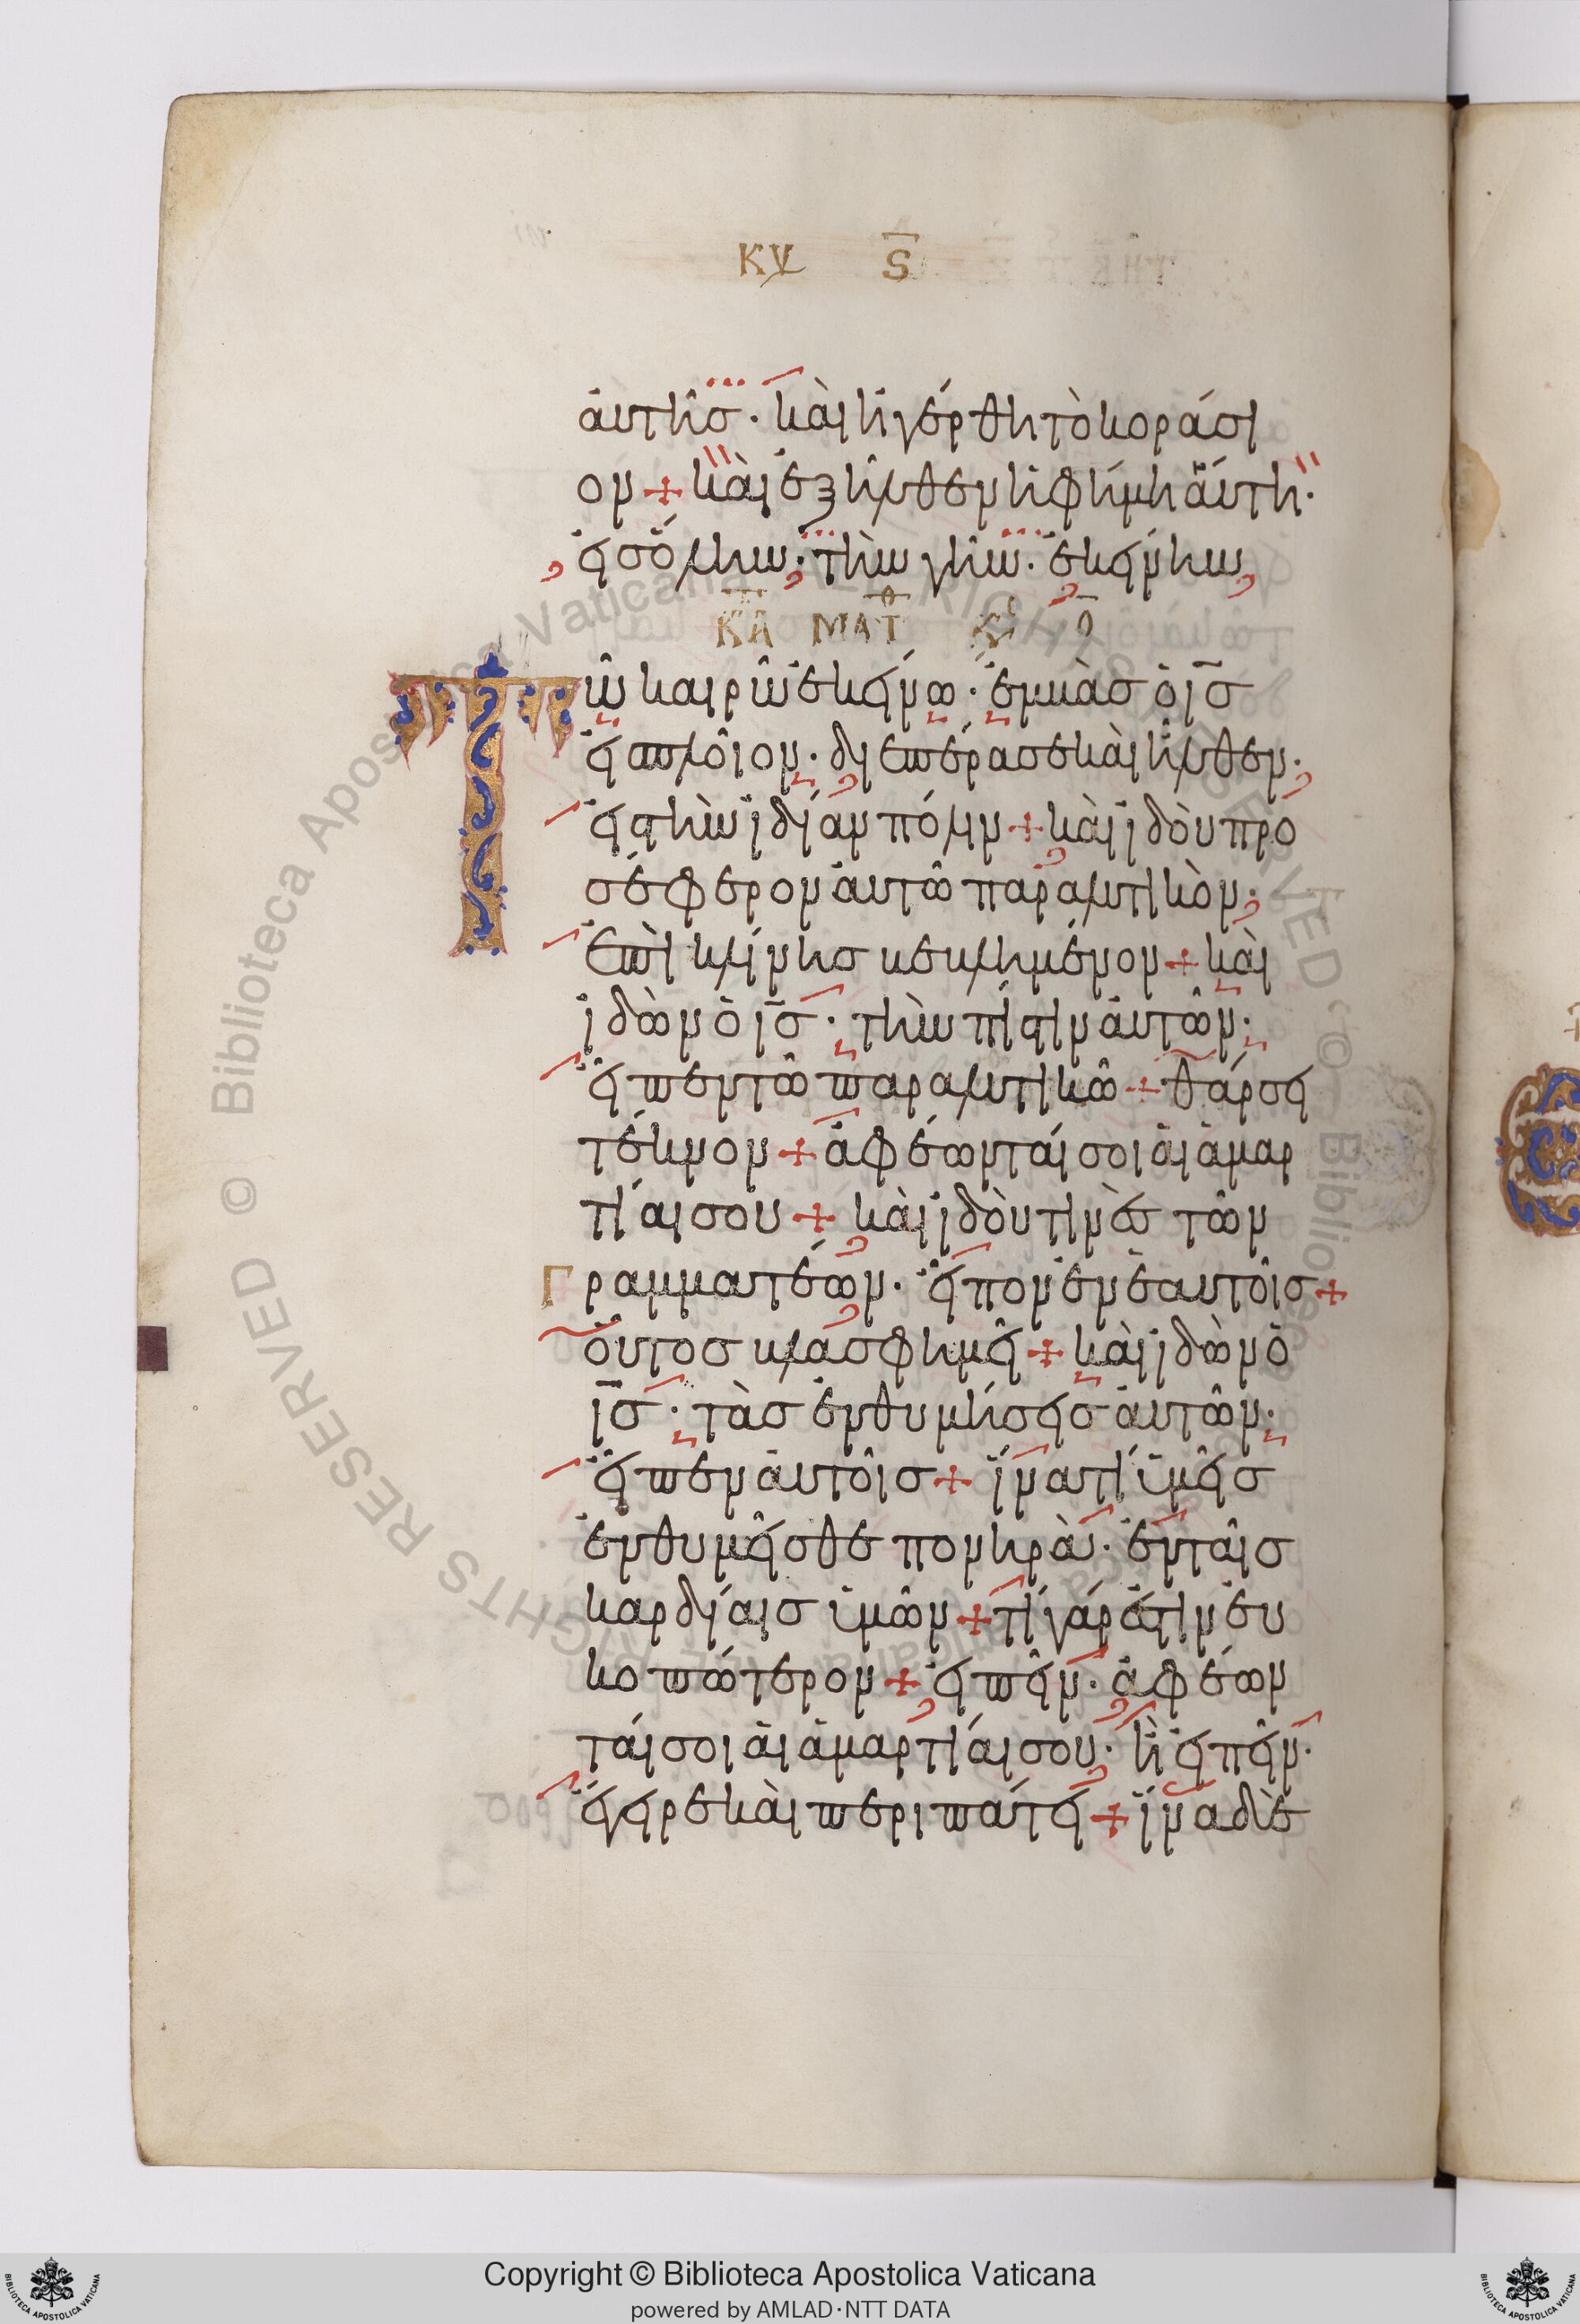 ΚΥ Ϛ
ἀυτῆσ· κὰι ἠγέρθη τὸ κοράσι
ον + κὰι ἐξῆλθεν ἡ φήμη ἅυτη·
εἰσ ὅλην· τὴν γῆν· ἐκείνην
ΚΑ ΜΑΤΘ
Τῶ καιρῶ ἐκείνω· ἐμβὰσ ὁ ισ
εἰσ πλοῖον· διεπέρασε κὰι ἦλθεν·
εἰσ τὴν ἰδίαν πόλιν + κὰι ἰδὸυ προ
σέφερον ἀυτῶ παραλυτικὸν·
ἐπὶ κλίνησ βεβλημένον + κὰι
ἰδὼν ὁ ισ· τὴν πίστιν ἀυτῶν·
εἶπεν τῶ παραλυτικῶ + θάρσει
τέκνον + ἀφέωνταί σοι ἁι ἁμαρ
τίαι σου + κὰι ἰδὸυ τινὲσ τῶν
Γραμματέων· εἶπον ἐν ἑαυτοῖσ +
ὅυτοσ βλασφημεῖ + κὰι ἰδὼν ὁ
ισ· τὰσ ἐνθυμήσεισ ἀυτῶν·
εἶπεν ἀυτοῖσ + ἵνα τί ὑμεῖσ
ἐνθυμεῖσθε πονηρὰ· ἐν ταῖσ
καρδίαισ ὑμῶν + τί γάρ ἐστιν ἐυ
κοπώτερον + εἰπεῖν· ἀφέων
ταί σοι ἁι ἁμαρτίαι σου· ἢ εἰπεῖν·
ἔγειρε κὰι περιπάτει + ἵνα δὲ
Copyright © Biblioteca Apostolica Vaticana
powered by AMLAD·NTT DATA